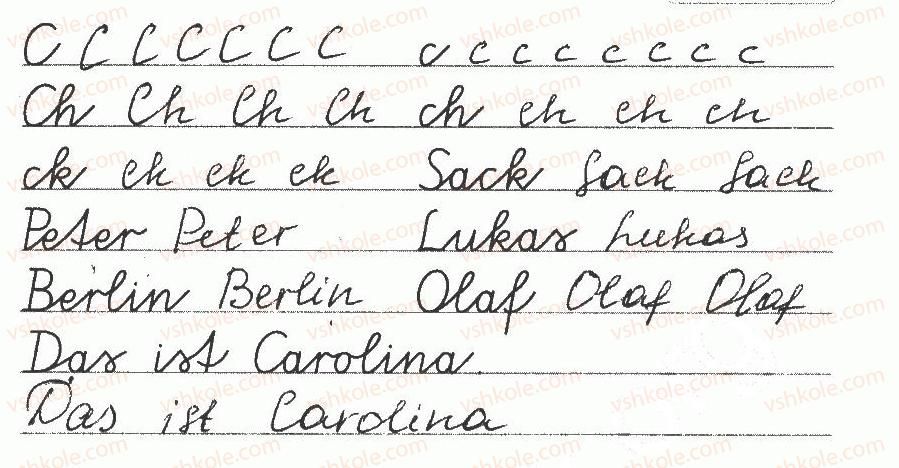 C C C C C C C c c c c c c c c
Ch Ch Ch Ch ch ch ch ch
ck ck ck ck Sack Sack Sack
Peter Peter Lukas Lukas
Berlin Berlin Olaf Olaf Olaf
Das ist Carolina.
Das ist Carolina